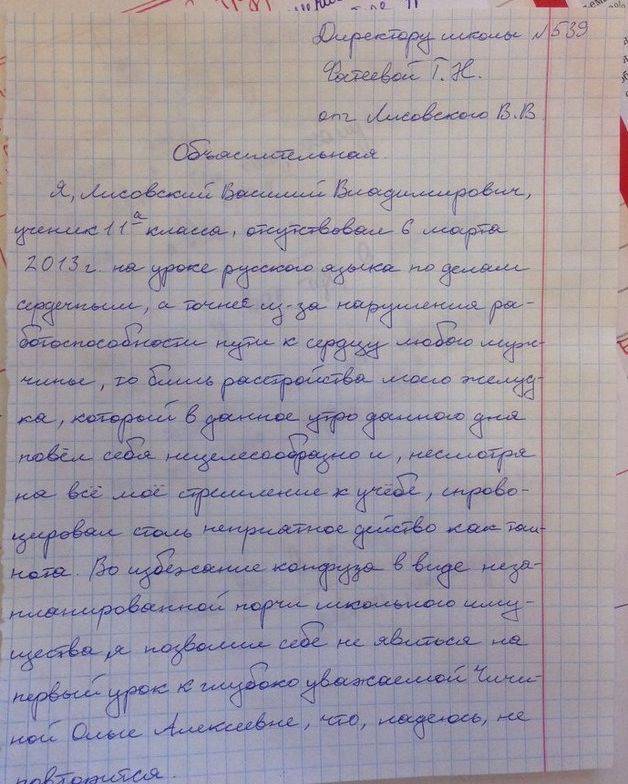 Директору школы №539
Фатеевой Г. Н.
от Лисовского В.В
Объяснительная.
Я, Лисовский Василий Владимирович,
ученик 11 а класса, отсутствовал 6 марта
2013 г. на уроке русского языка по делам
сердечным, а точнее из-за нарушения ра-
ботоспособности пути к сердцу любого муж-
чины, то бишь расстройства моего желуд-
ка, который в данное утро данного дня
повёл себя нецелесообразно и, несмотря
на всё моё стремление к учёбе, спрово-
цировал столь неприятное действо как тош-
нота. Во избежание конфуза в виде неза-
планированной порчи школьного иму-
щества, я позволил себе не явиться на
первый урок к глубоко уважаемой Чичи-
ной Ольге Алексеевне, что, надеюсь, не
повторится.